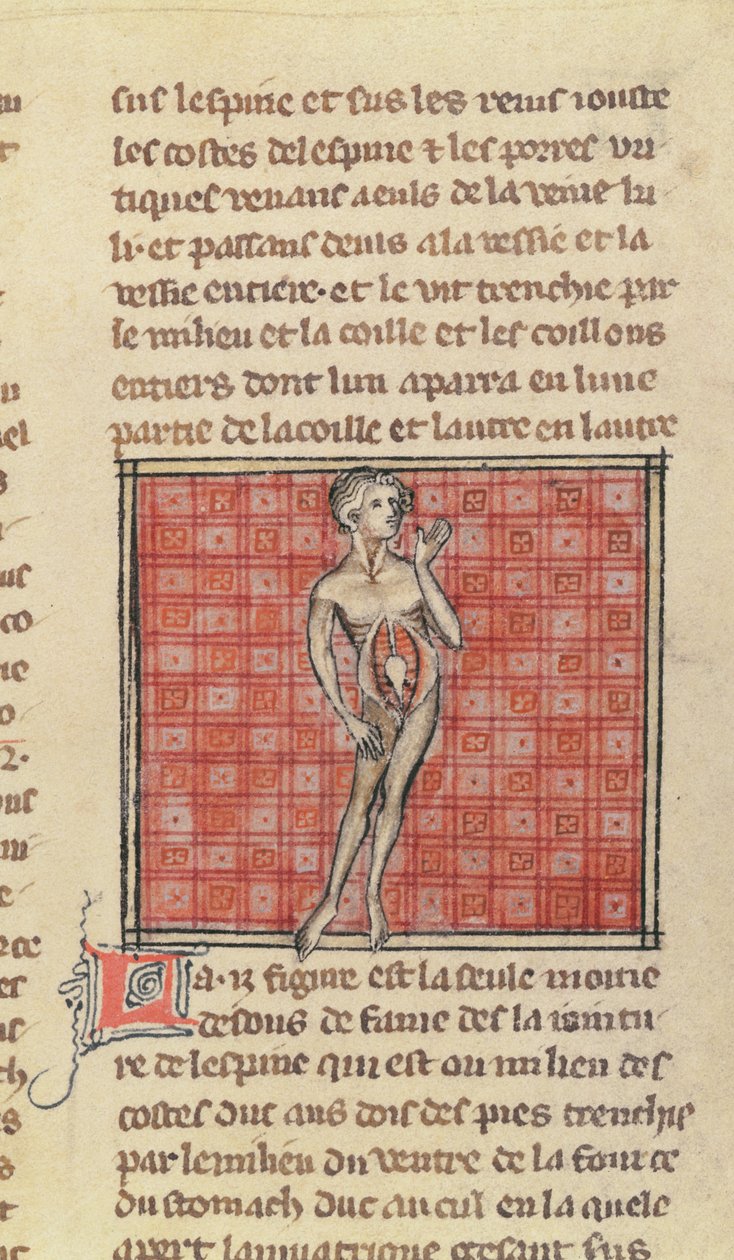 sus lespine et sus les reins iouste
les costes delespine ⁊ les porres vri
tiques venans a euls de la veine ki
li· et passans denis a la vessie et la
vessie entiere· et le vit trenchie par
le milieu et la coille et les coillons
entiers dont lun aparra en lune
partie de la coille et lautre en lautre
La· 12 figure est la seule moitie
desous de fame des la iointu
re de lespine qui est ou milieu des
costes duc aus dois des pies trenchie
par le milieu du ventre de la fource
du stomach duc au cul en la quele
apert la matrique gesant sus